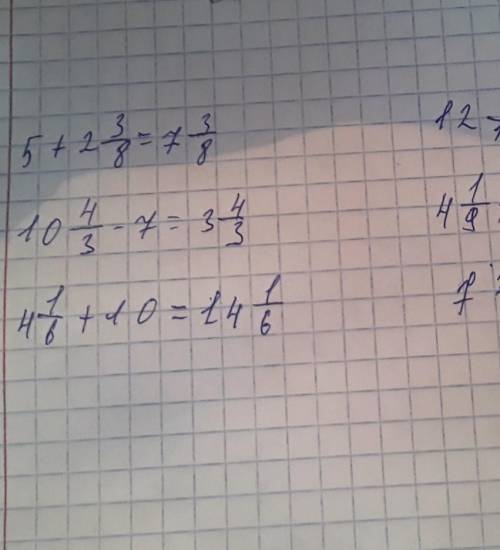 5 + 2 3/8 = 7 3/8
10 4/3 - 7 = 3 4/3
4 1/6 + 10 = 14 1/6
12
4 1/9
7